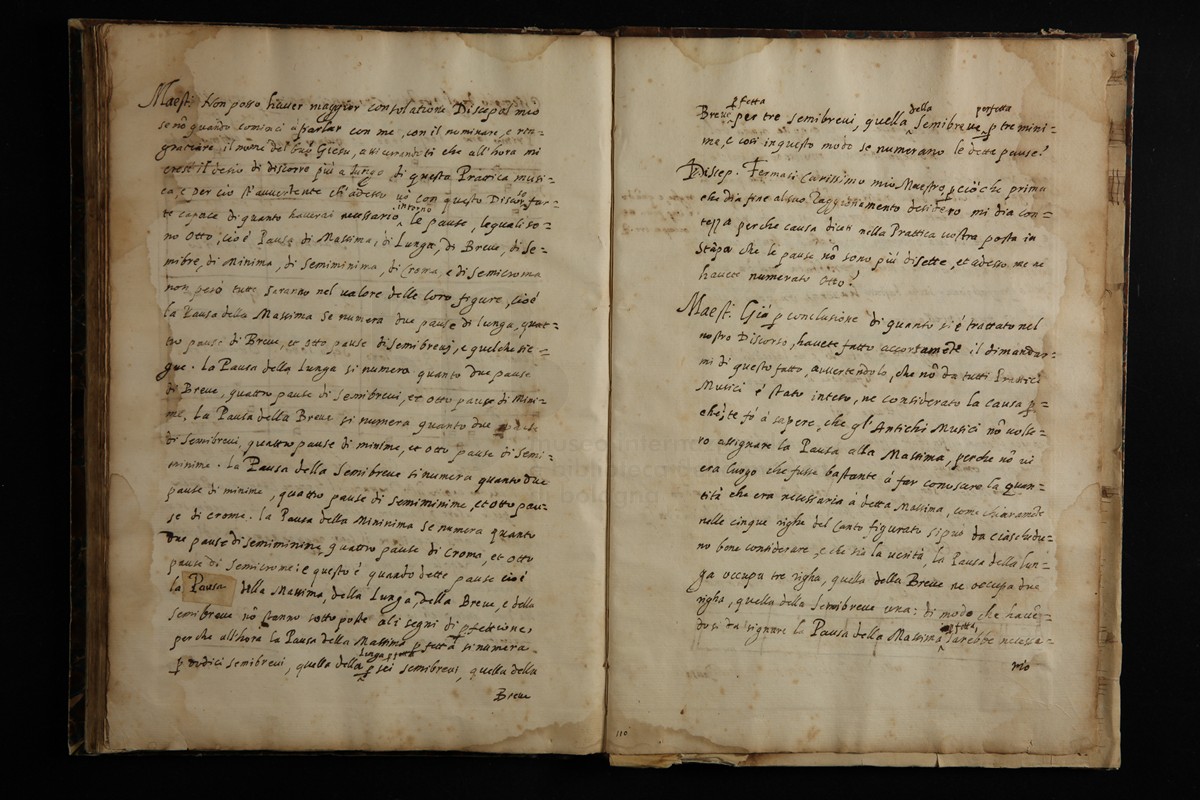 Maest: Non posso hauer maggior consolatione Discepol mio
se nõ quando cominci à parlar con me, con il nominare, e rin=
gratiare il nome del buõ Giesu, assicurandoti che all'hora mi
cresce il desio di discorre più a lungo di questa Prattica musi=
ca, e per ciò st'auuertente ch'adesso uò con questo Discorso far=
te capace di quanto hauerai necessario intorno le pause, lequali so=
no otto, cioè Pausa di Massima, di Lunga, di Breue, di Se=
mibre, di Minima, di Semiminima, di Croma, e di Semicroma
non però tutte saranno nel ualore delle loro figure, cioè
la Pausa della Massima se numera due pause di lunga, quat=
tro pause di Breue, et otto pause di semibreui, e quel che sie=
gue. La Pausa della Lunga si numera quanto due pause
di Breue, quattro pause di Semibreui, et otto pause di Mini=
me. La Pausa della Breue si numera quanto due
di Semibreui, quattro pause di minime, et otto pause di Semi=
minime. La Pausa della Semibreue si numera quanto due
pause di minime, quattro pause di semiminime, et otto pau=
se di crome. La Pausa della Mininima se numera quanto
due pause di semiminime, quattro pause di Croma, et otto
pause di Semicrome: e questo è quando dette pause cioè
la Pausa della Massima, della Lunga, della Breue, e della
Semibreue nõ stanno sotto poste ali segni di pfettione,
perche all'hora la Pausa della Massima pfetta si numera
p dodici semibreui, quella della Lunga pfetta p sei semibreui, quella della
Breue
Breue pfetta per tre semibreui, quella della Semibreue perfetta p tre mini=
me, e cosi in questo modo se numerano le dette pause?
Discep. Fermati Carissimo mio Maestro, e ciò che prima
che dia fine al suo Raggionamento desidero mi dia con=
tezza perche causa dicati nella Prattica uostra posta in
Stãpa che le pause nõ sono più di sette, et adesso me ne
hauete numerato otto?
Maest. Già p conclusione di quanto si è trattato nel
nostro Discorso, hauete fatto accortamẽte il dimandar=
mi di questo fatto, auuertendolo, che nõ da tutti Prattici
Musici è stato inteso, ne considerato la causa p=
che, te fò à sapere, che gl'Antichi Musici nõ uolse=
ro assignare la Pausa alla Massima, perche nõ ui
era luogo che fusse bastante á far conoscere la quan=
tità che era necessaria à detta Massima, come chiaramẽte
nelle cinque righe del Canto figurato si può da ciascheduu=
no bene considerare, e che sia la uerità, la Pausa della lun=
ga occupa tre righe, quella della Breue ne occupa due
righe, quella della Semibreue una: di modo che hauẽ=
dosi da signare la Pausa della Massima pfetta, sarebbe necessa=
rio
110